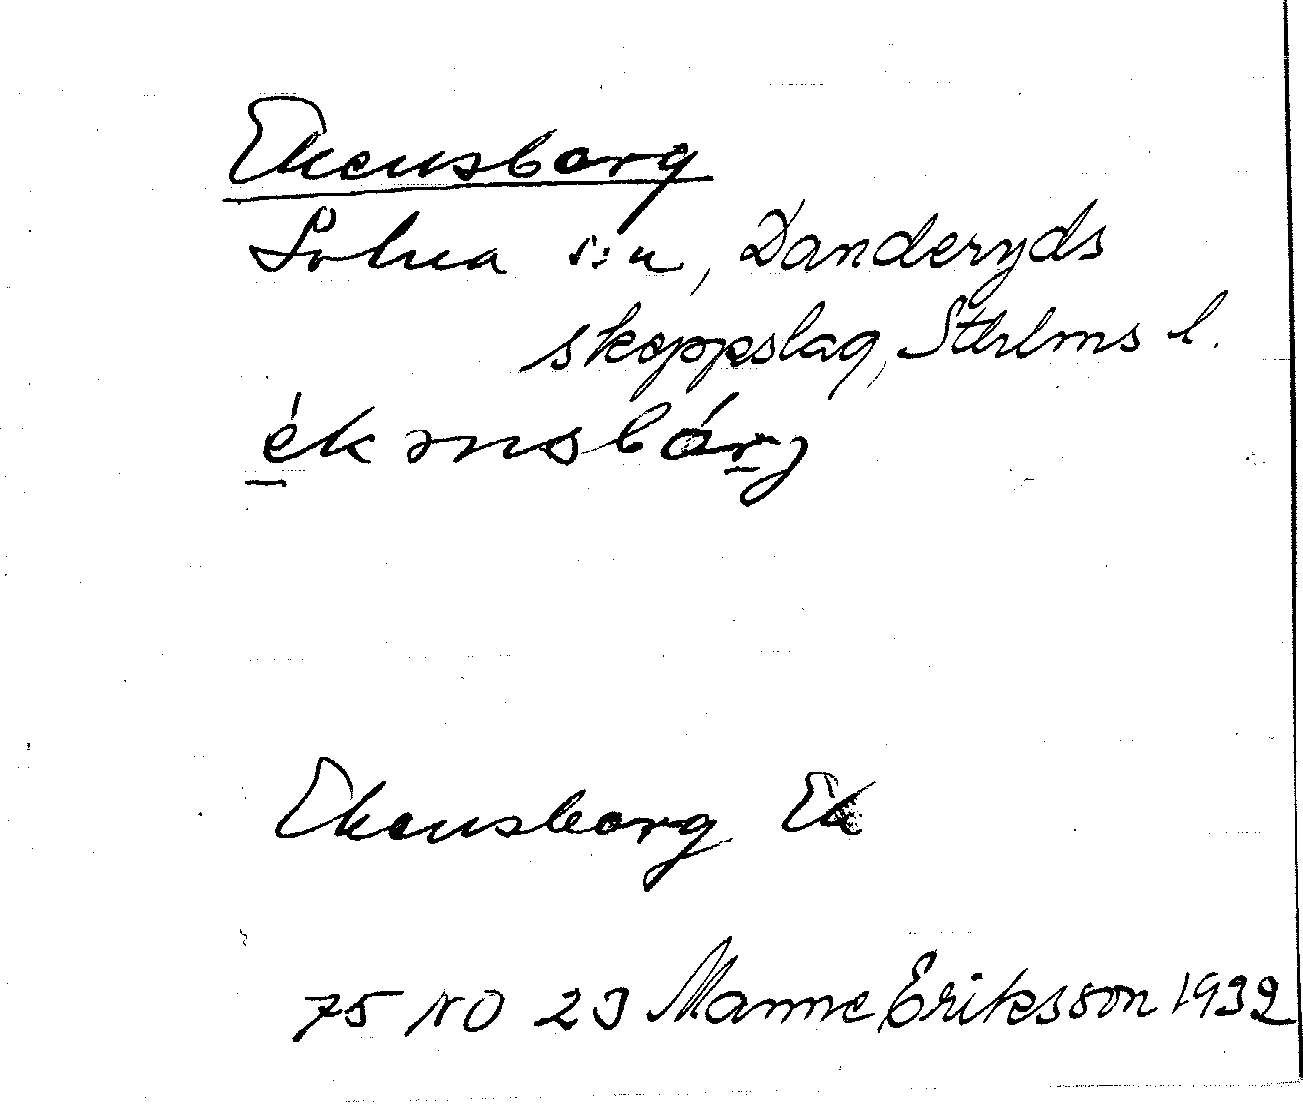 Ekensborg
Solna s:n, Danderyds
skeppslag, Sthlms l.
ékənsbórj
Ekensborg Ek
75 NO 23 Manne Eriksson 1932